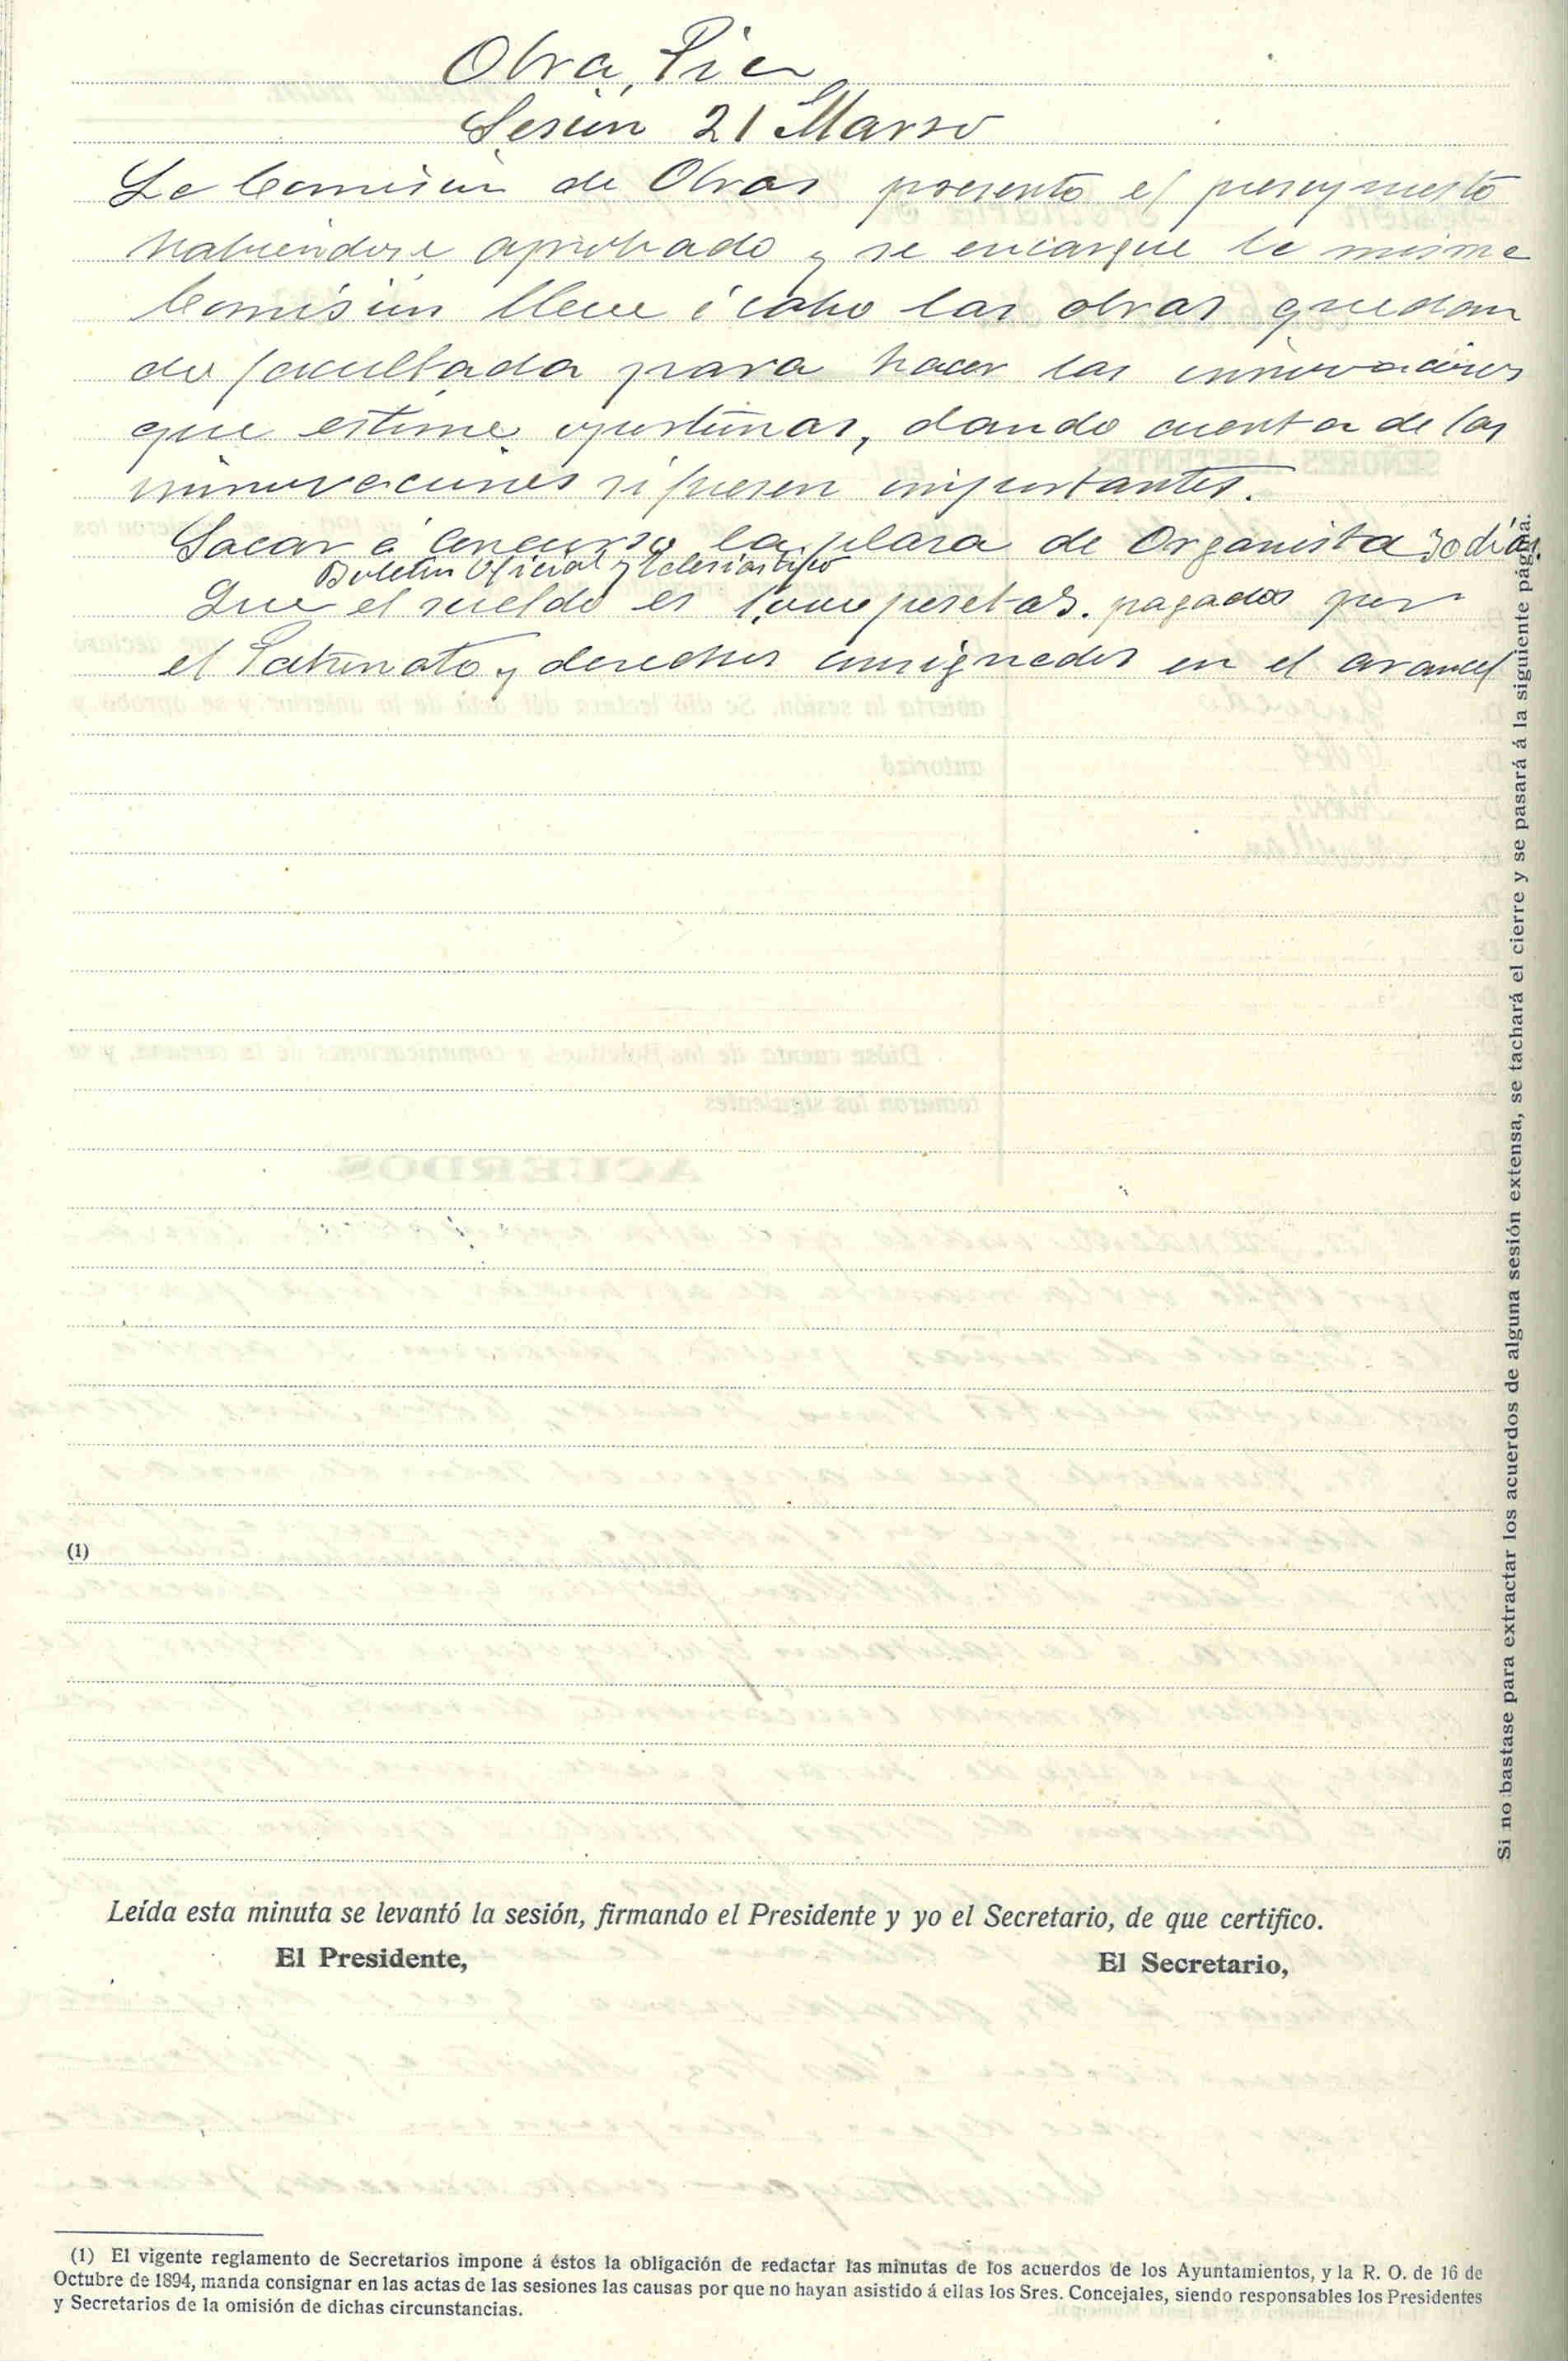 Obra Pia
Sesión 21 Marzo
La Comisión de Obras presentó el presupuesto
habiendose aprobado y se encargue la misma
Comisión lleve á cabo las obras quedan
do facultada para hacer las innovaciones
que estime oportunas, dando cuenta de las
innovaciones si fuesen importantes.
Sacar á Concurso la plaza de Organista 30 días
Boletin Oficial y Eclesiastico
Que el sueldo es 1,000 pesetas. pagados por
el Patronato y derechos consignados en el arancel
(1)
Leída esta minuta se levantó la sesión, firmando el Presidente y yo el Secretario, de que certifico.
El Presidente,
El Secretario,
(1) El vigente reglamento de Secretarios impone á éstos la obligación de redactar las minutas de los acuerdos de los Ayuntamientos, y la R. O. de 16 de
Octubre de 1894, manda consignar en las actas de las sesiones las causas por que no hayan asistido á ellas los Sres. Concejales, siendo responsables los Presidentes
y Secretarios de la omisión de dichas circunstancias.
Si no bastase para extractar los acuerdos de alguna sesión extensa, se tachará el cierre y se pasará á la siguiente página.